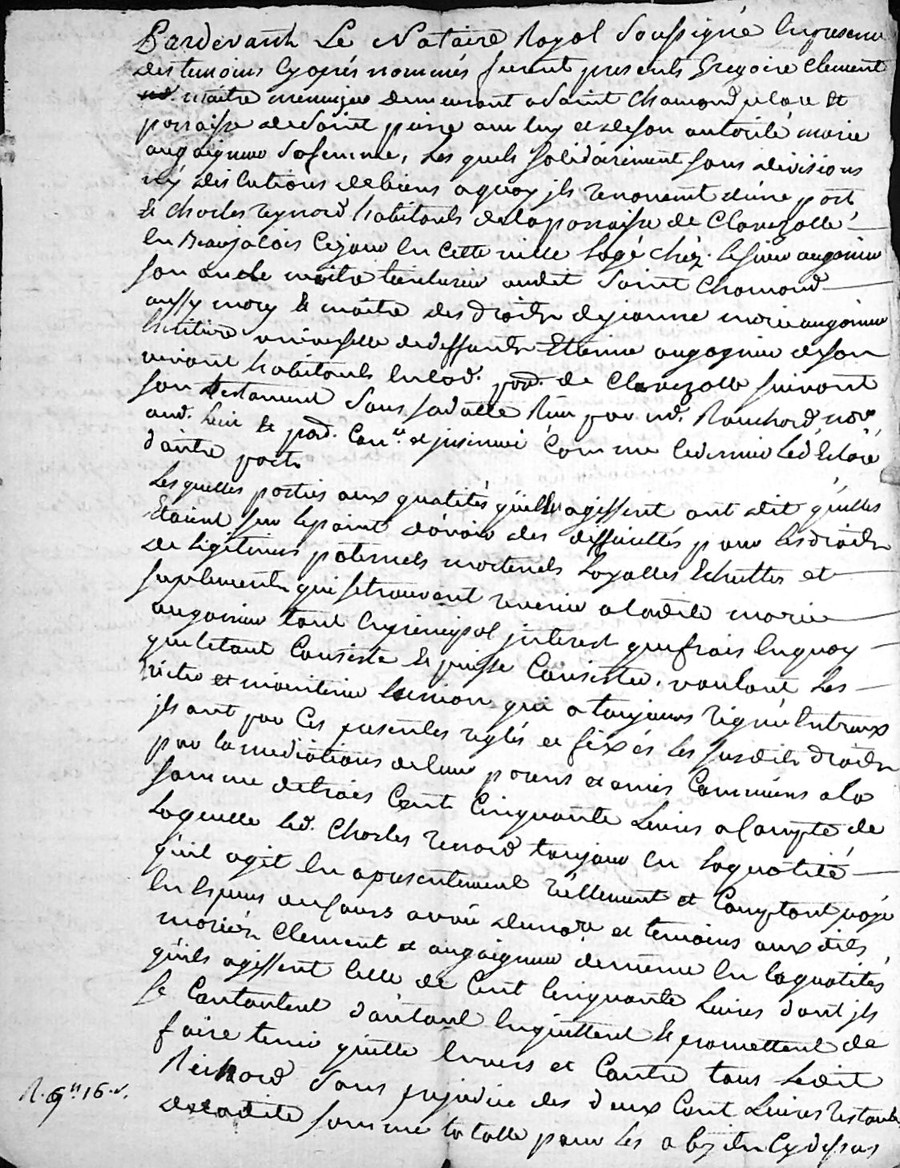 Pardevant Le Notaire Royal Soussigné En presence
des temoins cy aprés nommés furent presents Gregoire Clement
maitre menuizier demeurant a Saint Chamond place et
parroisse de Saint pierre et de son autorité marie
augoigneur sa femme, Les quels solidairement sans divisions
ny discutions de biens a quoy ils renoncent d'une part
& Charles reynard habitants de la parroisse de Claveizolle
En Beaujolais Ce jour En Cette ville Logé chéz Le sieur augoineur
son oncle maitre teinturier audit Saint Chamond
aussy mary & maitre des droits de jeanne marie augoineur
héritière universelle de deffunt Etienne augogneur de son
vivant habitants En lad. par. de Claveizolle suivant
son testament sous sa datte Reçu par md. Not.re
aud. Lieu & par. Con.lé et jnsinué Comme Ce dernier Le déclare
d'autre part
Les quelles parties aux qualités qu'elles agissent ont dit qu'elles
Etaient sur le point d'avoir des difficultés pour les droits
De Légitimes paternels maternels Loyalles Echuttes et
suplement qui se trouvent revenir a ladite marie
augoineur tant En principal jnterest que frais En quoy
que le tout Consiste & puisse Consister, voulant Les
et maintenir L'union qui a toujours regné Entreux
jls ont par Ces presentes reglés et fixés Les susdits droits
par la mediations de leurs parens et amis Communs a la
somme de trois Cent Cinquante Livres a Compte de
Laquelle Led. Charles renard toujour En La qualité
qu'il agit En a presentement réellement et Comptant payé
En Especes au Cours a vüe de no.re et temoins aux dits
mariés Clement et augoigneur de meme En la qualités
qu'ils agissent Celle de Cent Cinquante Livres dont jls
se Contantent d'autant En quittent & promettent de
faire tenir quitte Envers et Contre tous Ledit
Reinard Sans prejudice des deux Cent Livres restantes
de ladite somme totalle pour Les Cy dessus